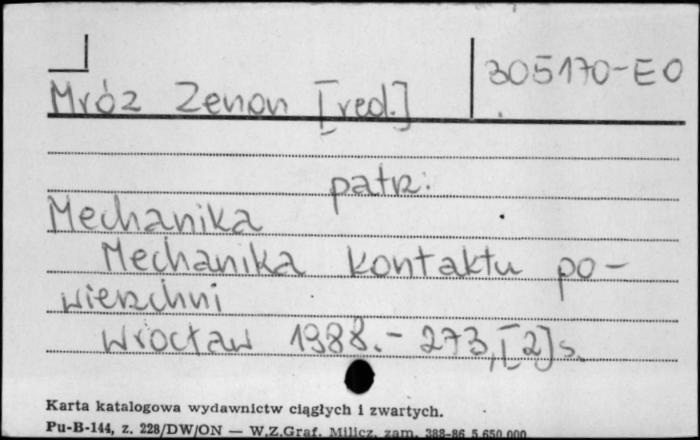 305170-EO
Mróz Zenon [red.]
patrz:
Mechanika
Mechanika kontaktu po-
wierzchni
Wrocław 1988.- 273,[2]s.
Karta katalogowa wydawnictw ciągłych i zwartych.
Pu-B-144, z. 228/DW/ON — W.Z.Graf. Milicz, zam. 388-86 5.650.000